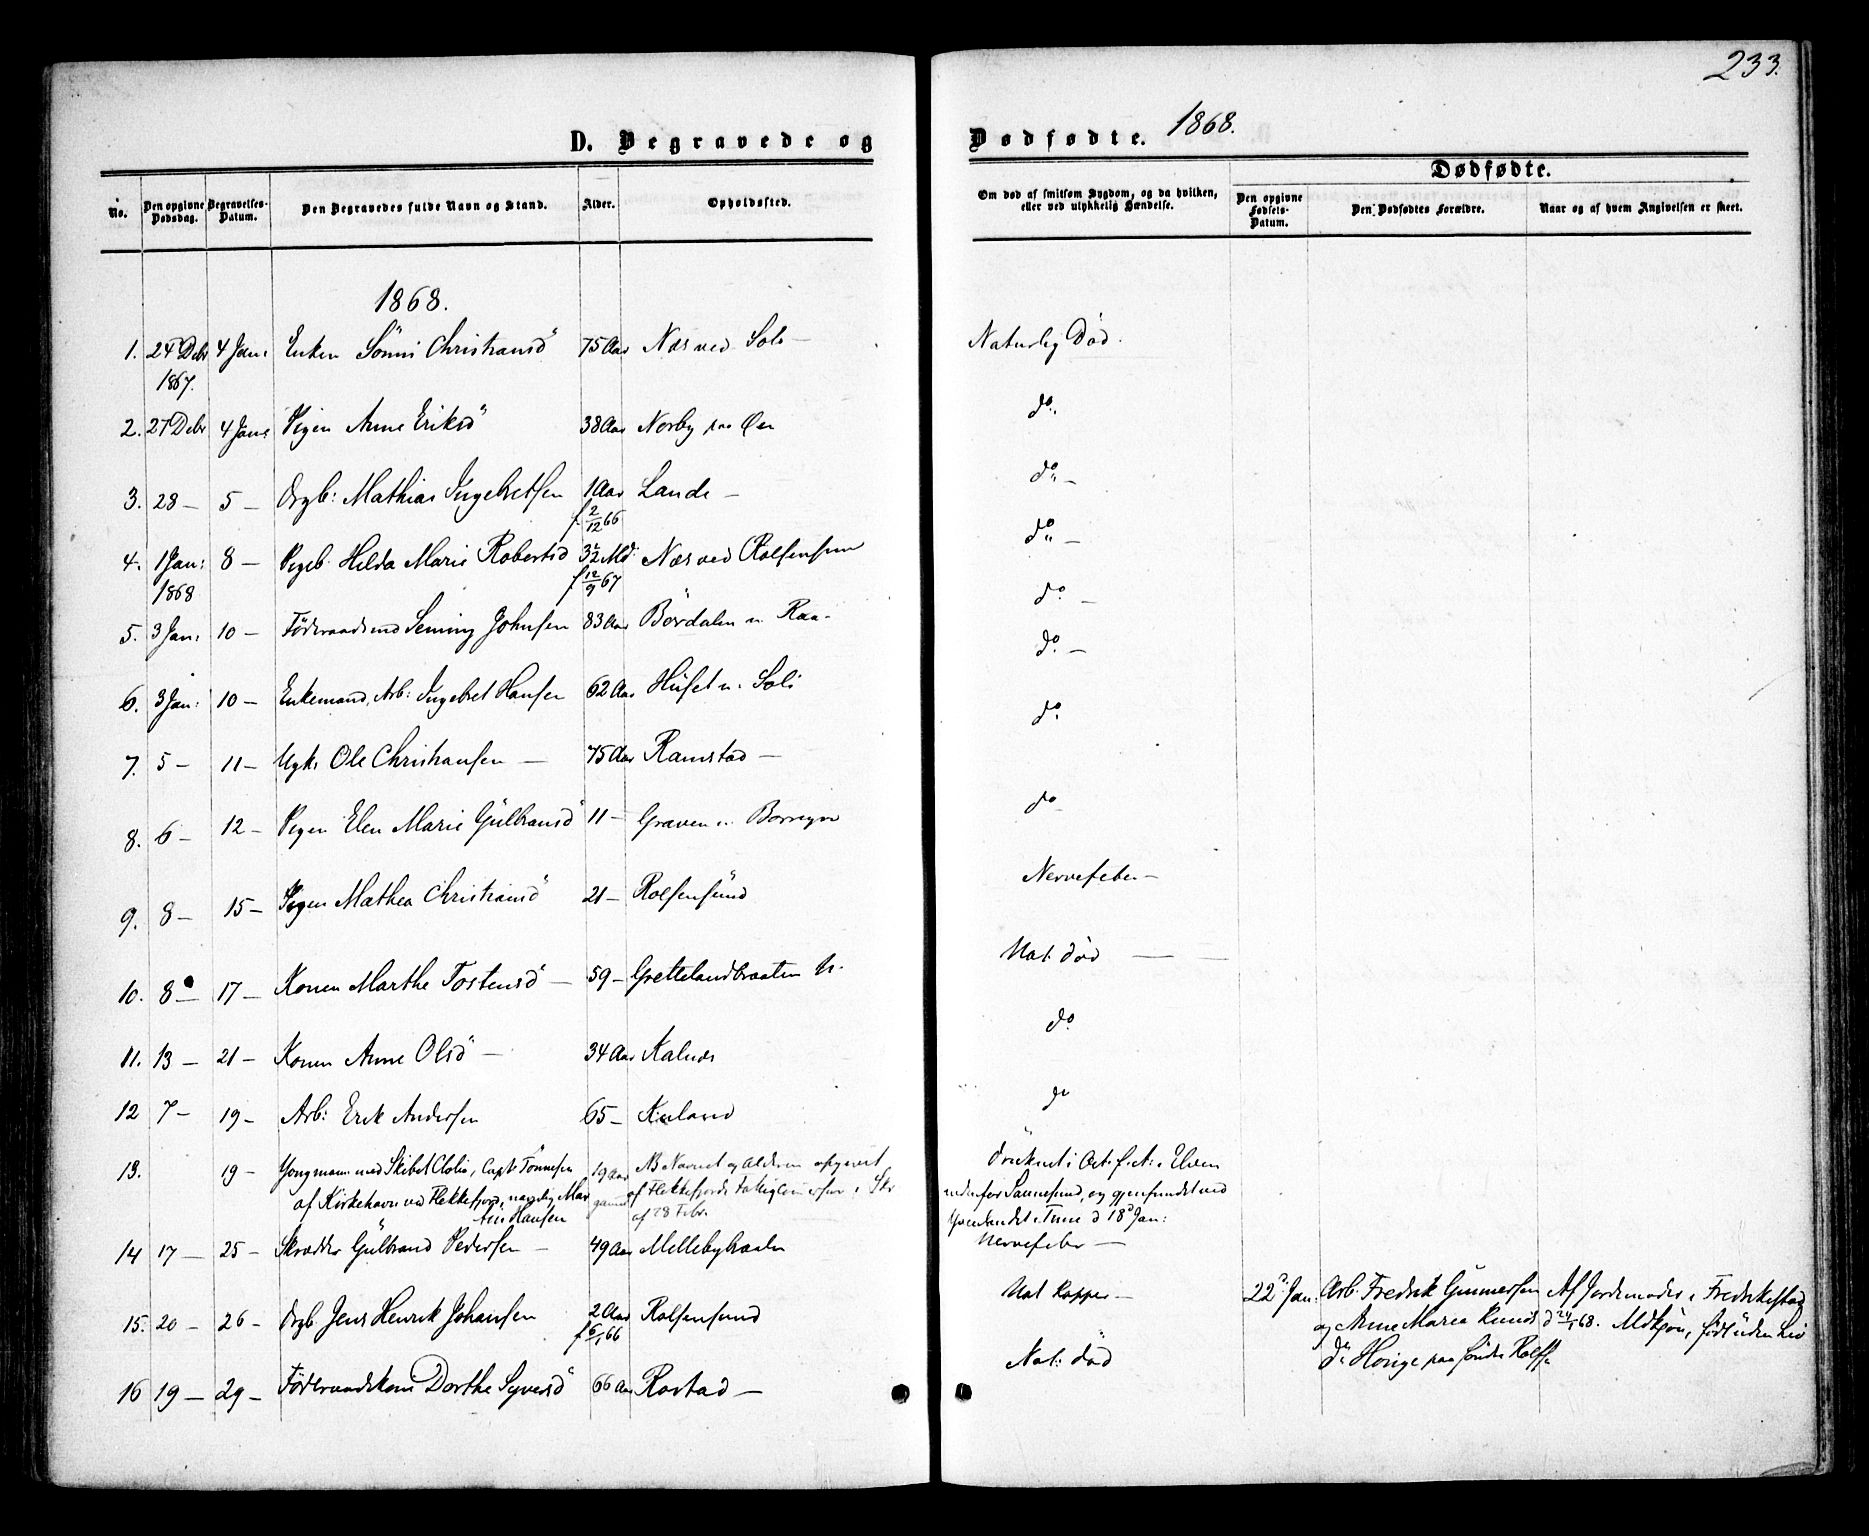 233.
D. Begravede og
Dødfødte. 1868.
No.
Den opgivne Dødsdag.
Begravelses-Datum.
Den Begravedes fulde Navn og Stand.
Alder.
Opholdssted.
Om død af smitsom Sygdom, og da hvilken, eller ved ulykkelig Hændelse.
Dødfødte.
Den opgivne Fødsels-Datum.
Den Dødfødtes Forældre.
Naar og af hvem Angivelsen er skeet.
1868.
1. 24 Debr 4 Jan: Enken Christiansd 75 Aar Næs ved Soli — Naturlig Død.
1867.
2. 27 Debr 4 Jan: Pigen Anne Eriksd 38 Aar Norby paa Øen do
3. 28 — 5 — Drgb: Mathias Ingebretsen 1 Aar Lande — do —
f 2/12 66
4. 1 Jan: 8 — Pigeb. Hilda Marie Robertsd 3 1/2 Md: Næs ved Rolfsensun do —
1868 f 12/9 67
5. 3 Jan: 10 — Föderaadsmd Johnsen 83 Aar Bördalen u. Raa- do —
6. 3 Jan: 10 — Enkemand, Arb: Ingebret Hansen 62 Aar Huset u. Soli do —
7. 5 — 11 — Ugk: Ole Christiansen — 75 Aar Ramstad — do
8. 6 — 12 — Pigen Elen Marie Gulbransd 11 — Graven u. do
9. 8 — 15 — Pigen Mathea Christiansd 21 — Rolfsensund Nervefeber —
10. 8 — 17 — Konen Marthe Tostensd — 59 — Grettelandbraaten u. Nat. död —
11. 13 — 21 — Konen Anne Olsd — 34 Aar Kalnæs do
12 7 — 19 — Arb: Erik Andersen 65 — do
13. 19 — Yongmann med Skibet Clolio, Capt. Tönnesen 19 Aar NB Navnet og Alderen opgivet druknet i Elven
af Kirkehavn ved Flekkefjord, navnlig Mar gammel af Flekkefjords i Skr nedenfor Sannesund, og gjenfundet ved
Hansen af 28 Febr. i Tune d 18 Jan:
14 17 — 25 — Skrædder Gulbrand Pedersen — 49 Aar Mellebybraaten Nervefeber —
15. 20 — 26 — Drgb Jens Henrik Johansen 2 Aar Rolfsensund Kopper — 22 Jan. Arb. Fredrik Gunnersen Af Jordemoder i Fredrikstad
f 6/1 66 og Anne Marea d 24/1 68. Mdkjön, født uden Liv
16 19 — 29 — Föderaadskone Dorthe Syversd 66 Aar Rostad — Nat: död paa söndre